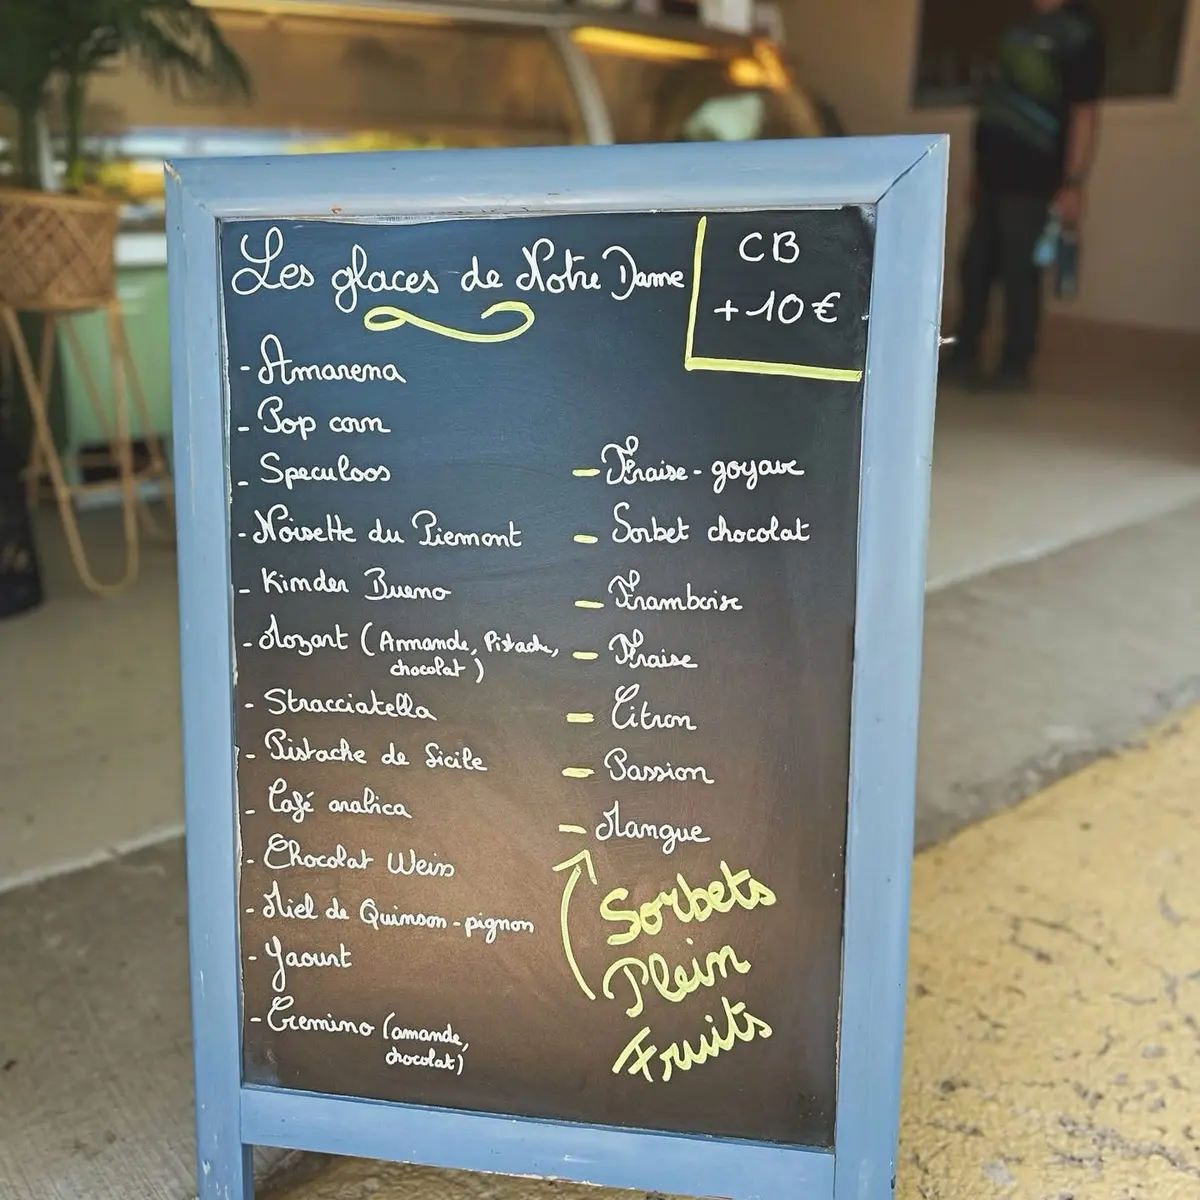 Les glaces de Notre Dame
CB
+10€
- Amarena
- Pop corn
- Speculoos
- Noisette du Piemont
- Kinder Bueno
- Mozart (Amande, Pistache,
chocolat)
- Stracciatella
- Pistache de Sicile
- Café arabica
- Chocolat Weiss
- Miel de Quinson-pignon
- Yaourt
- Cremino (amande,
chocolat)
- Fraise-goyave
- Sorbet chocolat
- Framboise
- Fraise
- Citron
- Passion
- Mangue
Sorbets
Plein
Fruits